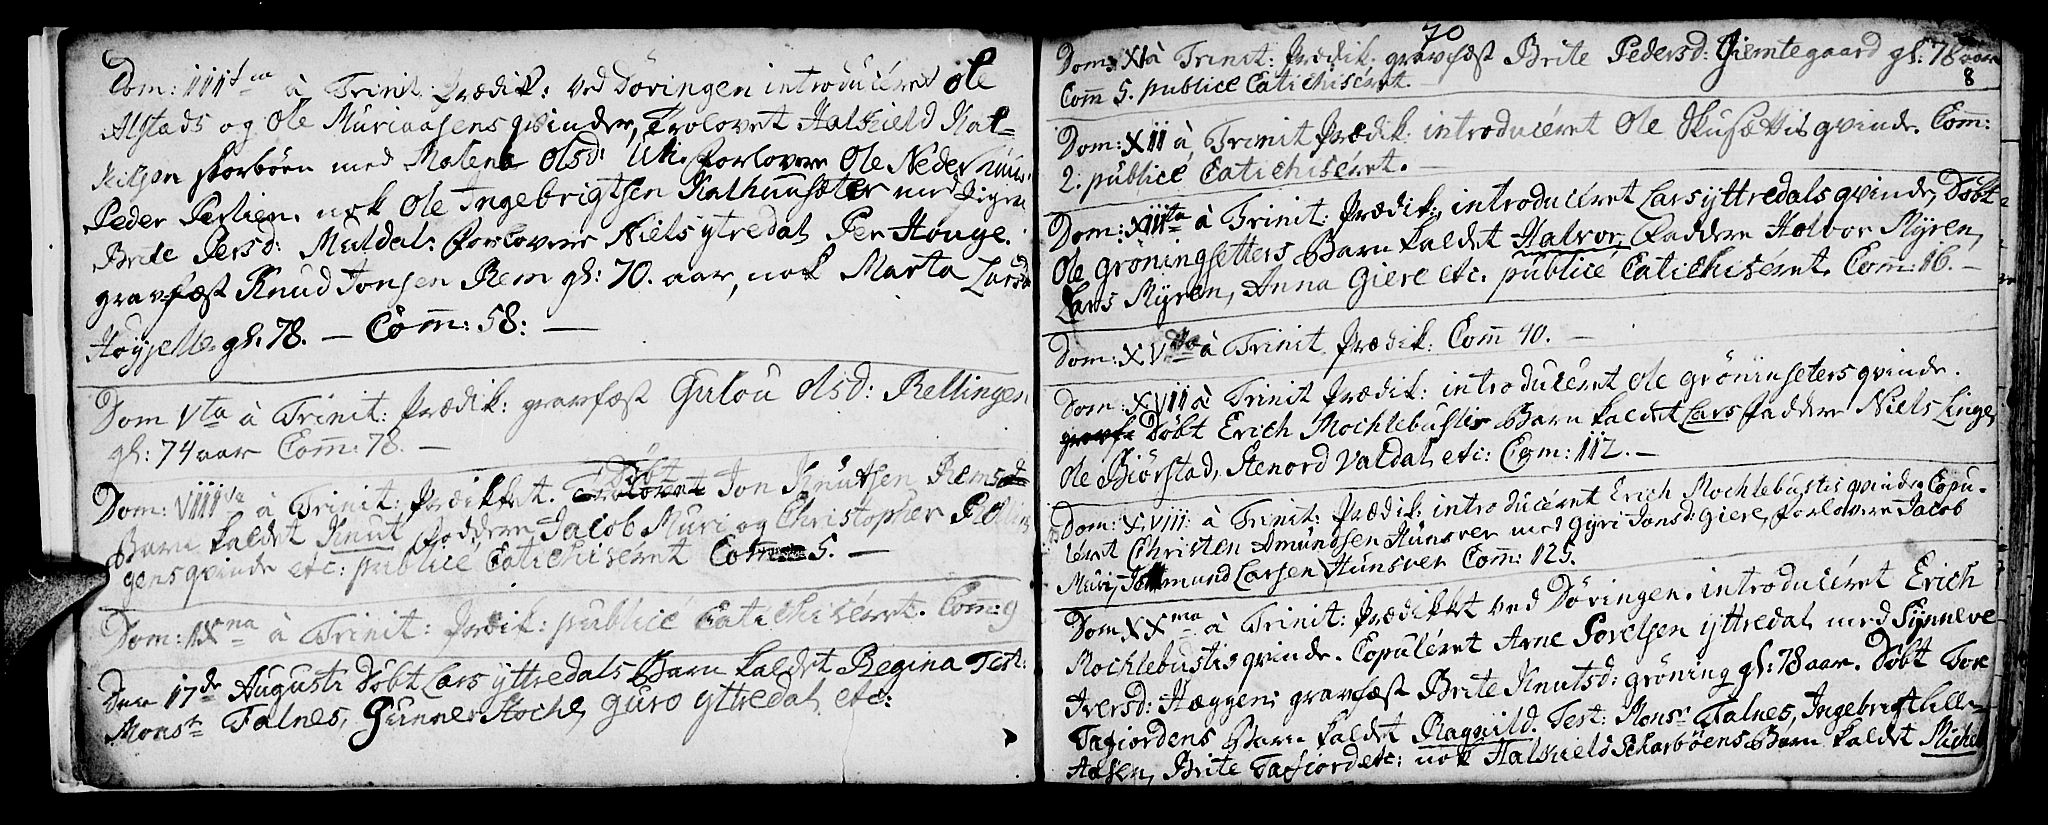 Dom: III tia à Trinit: Prædik: ved Döringen introducéret Ole
Alstads og Ole Muriaasens qvinder, Trolovet Halkield Hal-
kilsøn skorböen med Malena Olsd: Uri. forlovere Ole Neder
Peder Perlien. nok Ole Ingebrigtsen Kalhuussæter med Pigen
Brite Persd: Muldal: forlovere Niels ytredal Per Houge.
gravfæst Knud Jonsen Rem gl: 70. aar, nok Marta Larsd
Höysette gl: 78. — Comm: 58: —
Dom Vta à Trinit: Prædik: gravfæst Gulou Olsd: Rellingen
gl: 74 aar Comm: 78. —
Döbt
Dom: VIII va à Trinit: Prædikket. Trolovet Jon Knutsen Rems
Barn kaldet Knut faddere Jacob Muri og Christopher Relling
gens qvinde etc: publicé Catichiséret Com 5. —
Dom: IX na à Trinit: Prædik: publicé Catichiséret. Com: 9
Den 17de Augusti Döbt Lars yttredals Barn kaldet Regina Test:
Mons: Falnes, Gunner Hoche, Guro yttredal etc:
70
Dom: XI à Trinit: Prædik: gravfæst Brite Pedersd: Giemtegaard gl: 78 aar
8
Com 5. publicé Catichiséret. —
Dom: XII à Trinit Prædik: introducéret Ole Skusættis qvinde. Com:
2. publicé Catichiséret. —
Dom: XIII ta à Trinit: Prædik: introducéret Lars yttredals qvinde, Döbt
Ole Gröningsetters Barn kaldet Halvor, Faddere Halvor Myren,
Lars Myren, Anna Giere etc: publicé Catichiséret. Com: 16. —
Dom: XV ta à Trinit. Prædik: Com 40. —
Dom: XVII à Trinit Prædik: introducéret Ole Gröninseters qvinde.
gravfe Döbt Erich Mochlebustis Barn kaldet Lars faddere Niels Linge,
Ole Biörstad, Stenord Valdal etc: Com: 112. —
Dom: XVIII: à Trinit: Prædik: introducéret Erich Mochlebustis qvinde Copu-
léret Christen Amundsen Hunsver med Gyri Jonsd: Giere, forlovere Jacob
Muri, Jo Amund Larsen Hunsver Com: 125.
Dom XX ma à Trinit: Prædikket ved Döringen. introducéret Erich
Mochlebustis qvinde. Copuléret Arne Sorelsen yttredal med Synneve
Iversd: Hæggen: gravfæst Brite Knutsd: Gröning gl: 78 aar. Döbt Tore
Tafiordens Barn kaldet Ragnild. Test: Mons: Falnes, Ingebrigt Lille-
Aasen, Brite Tafiord etc: nok Halkiels Scharböens Barn kaldet Michel